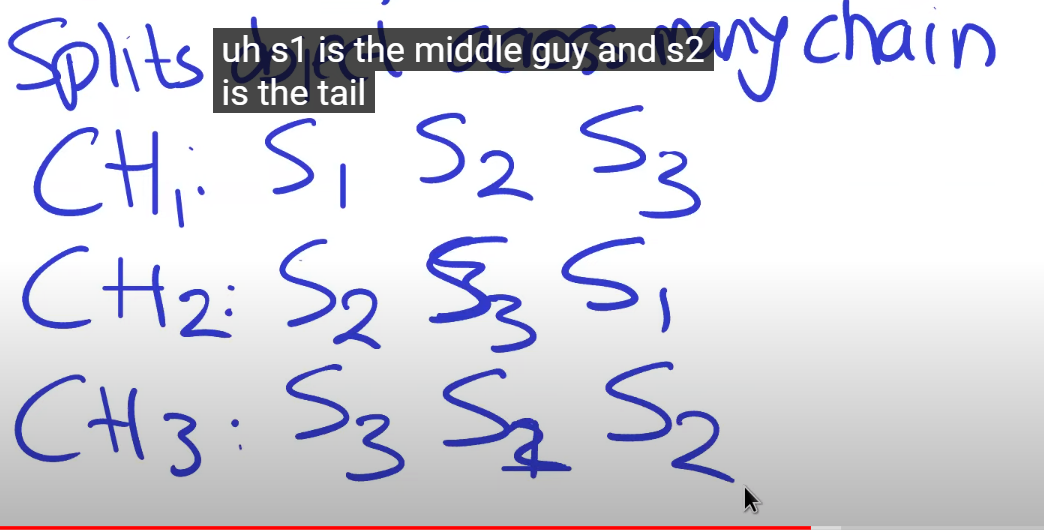 Splits object across many chain
uh s1 is the middle guy and s2
is the tail
CH1: S1 S2 S3
CH2: S2 S3 S1
CH3: S3 S1 S2